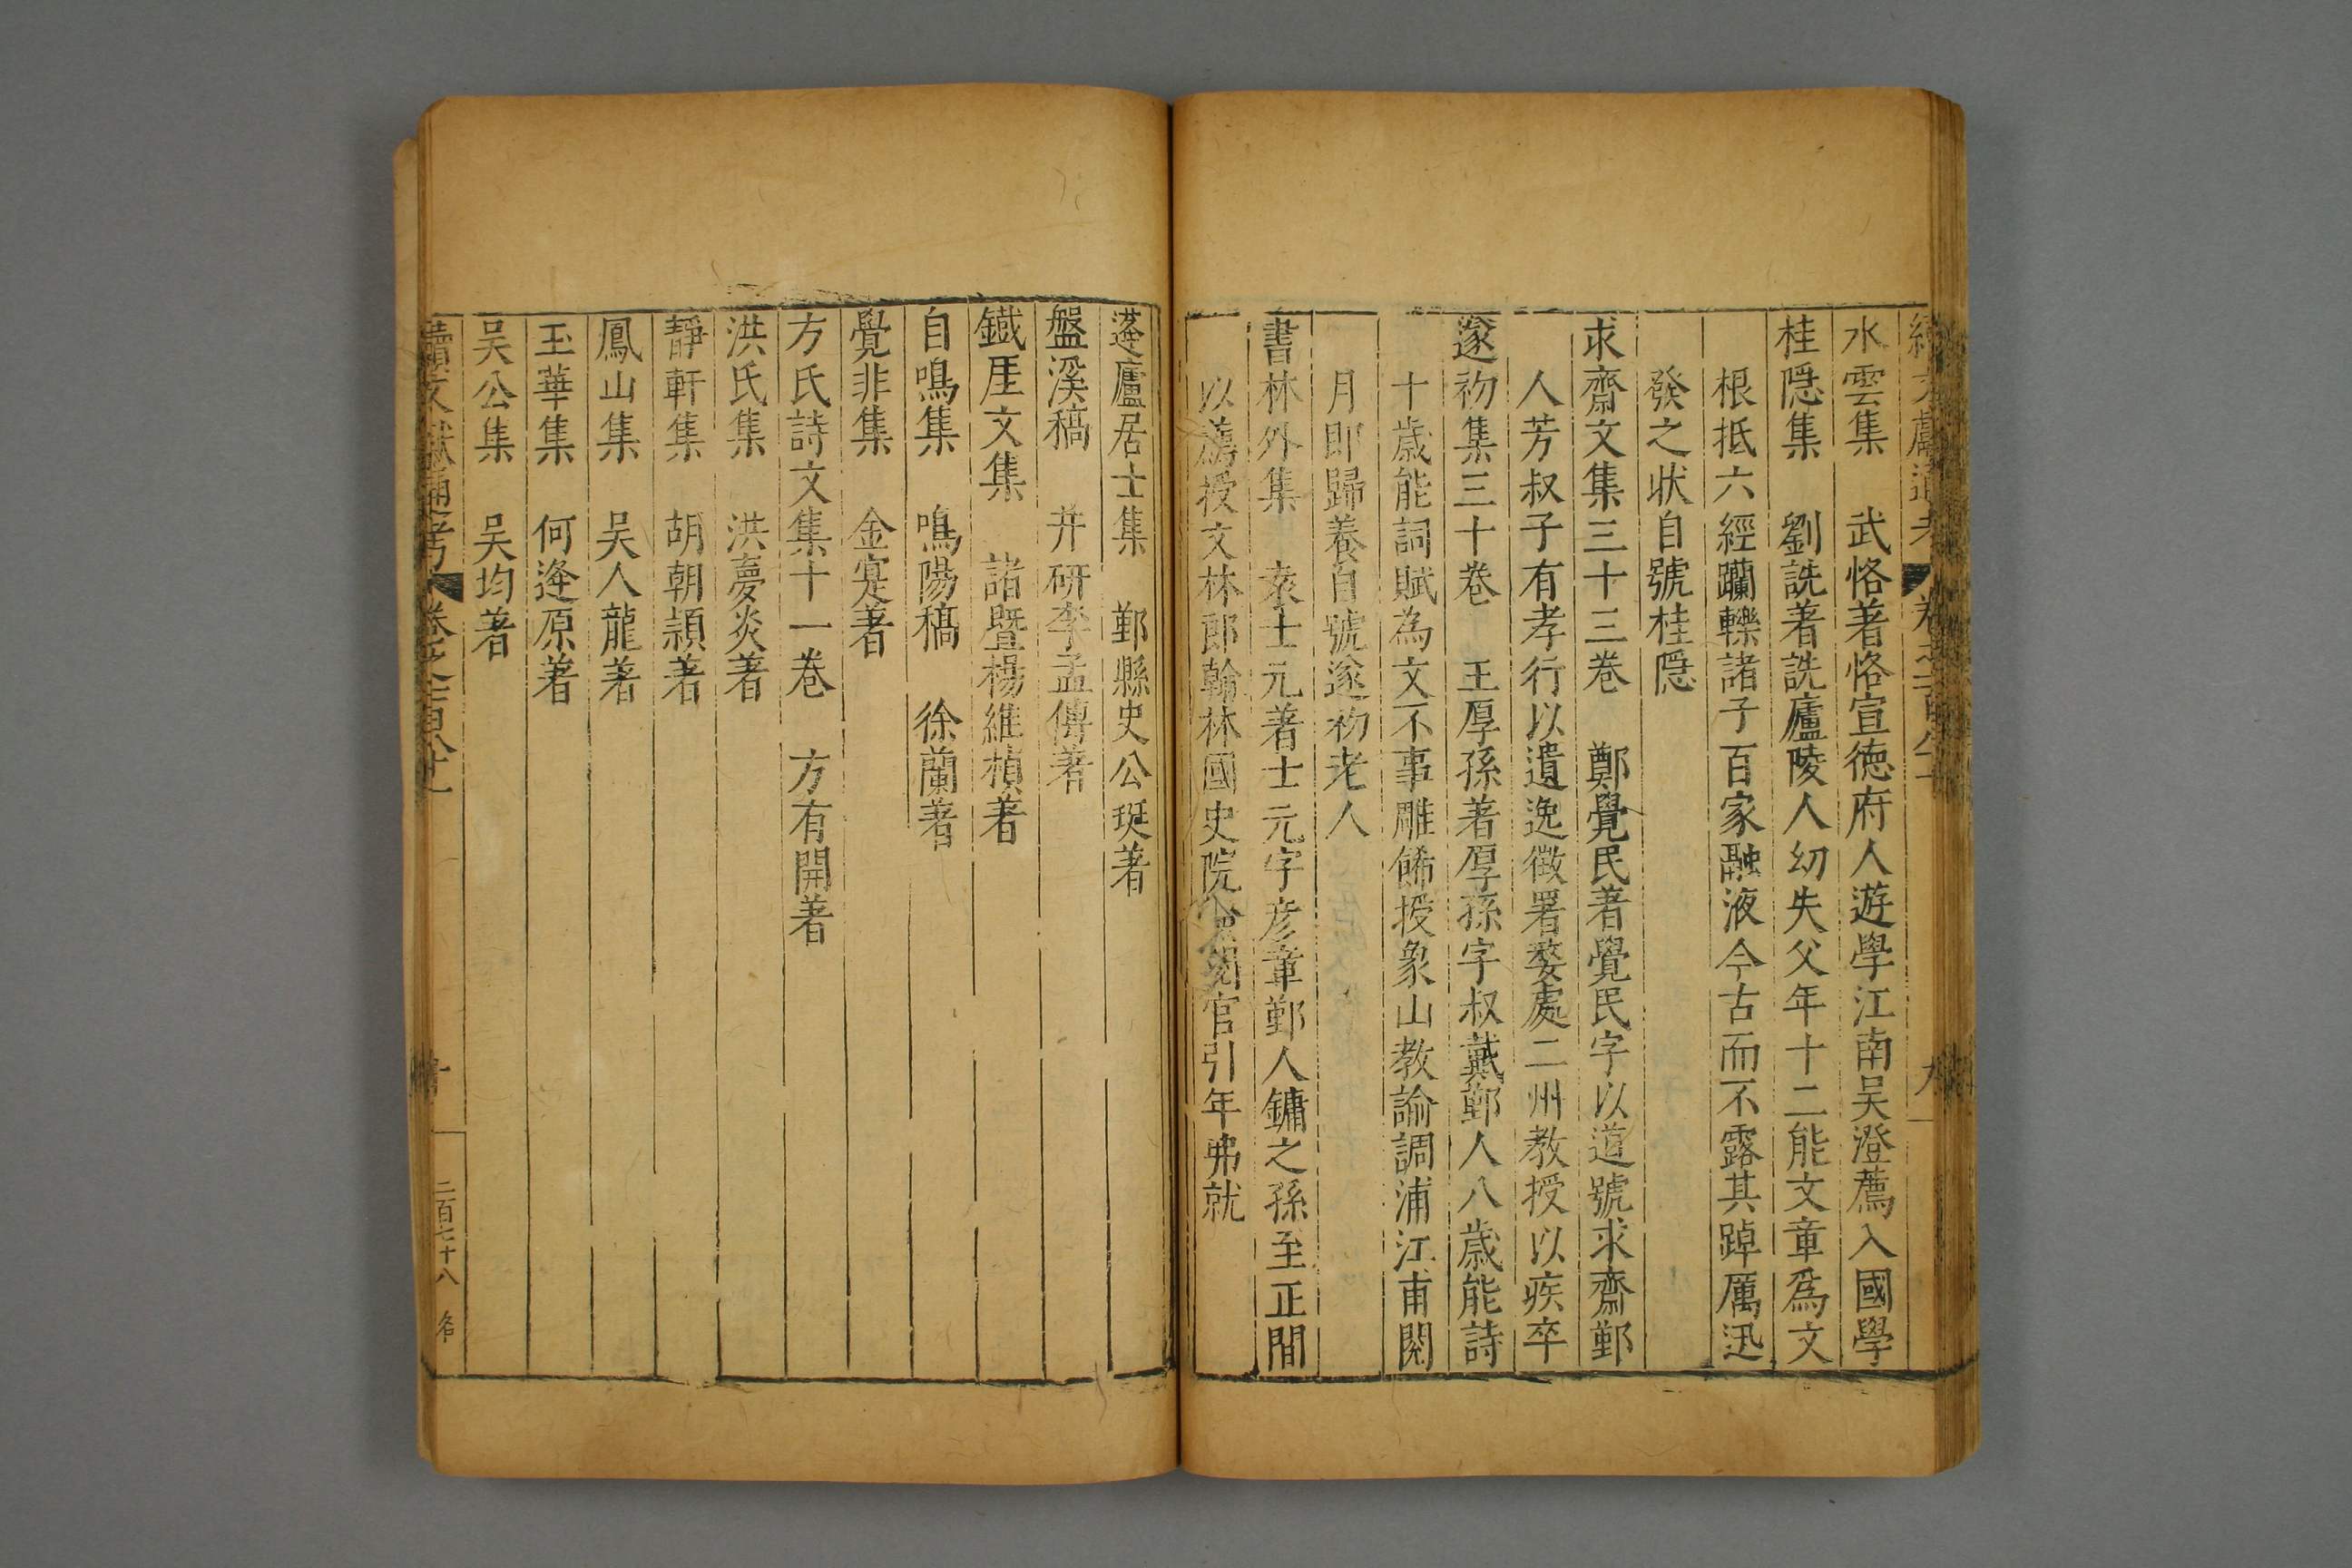 水雲集　武恪著恪宣德府人遊學江南吴澄薦入國學
桂隠集　劉詵著詵廬陵人幼失父年十二能文章爲文
根抵六經躪轢諸子百家融液今古而不露其踔厲迅
發之状自號桂隠
求齋文集三十三巻　鄭覺民著覺民字以道號求齋鄞
人芳叔子有孝行以遺逸徵署婺處二州教授以疾卒
遂初集三十巻　王厚孫著厚孫字叔戴鄞人八歳能詩
十歳能詞賦為文不事雕餙授象山教諭調浦江甫閱
月即歸養自號遂初老人
書林外集　袁士元著士元字彦章鄞人鏞之孫至正間
以薦授文林郎翰林國史院檢閲官引年弗就
蓬廬居士集　鄞縣史公珽著
盤溪稿　井研李孟傳著
鐵厓文集　諸暨楊維楨著
自鳴集　鳴陽稿　徐蘭著
覺非集　金寔著
方氏詩文集十一巻　方有開著
洪氏集　洪夢炎著
静軒集　胡朝頴著
鳳山集　吴人龍著
玉華集　何逄原著
吴公集　吴均著
續文獻通考　卷之一百八十一　十　二百七十八